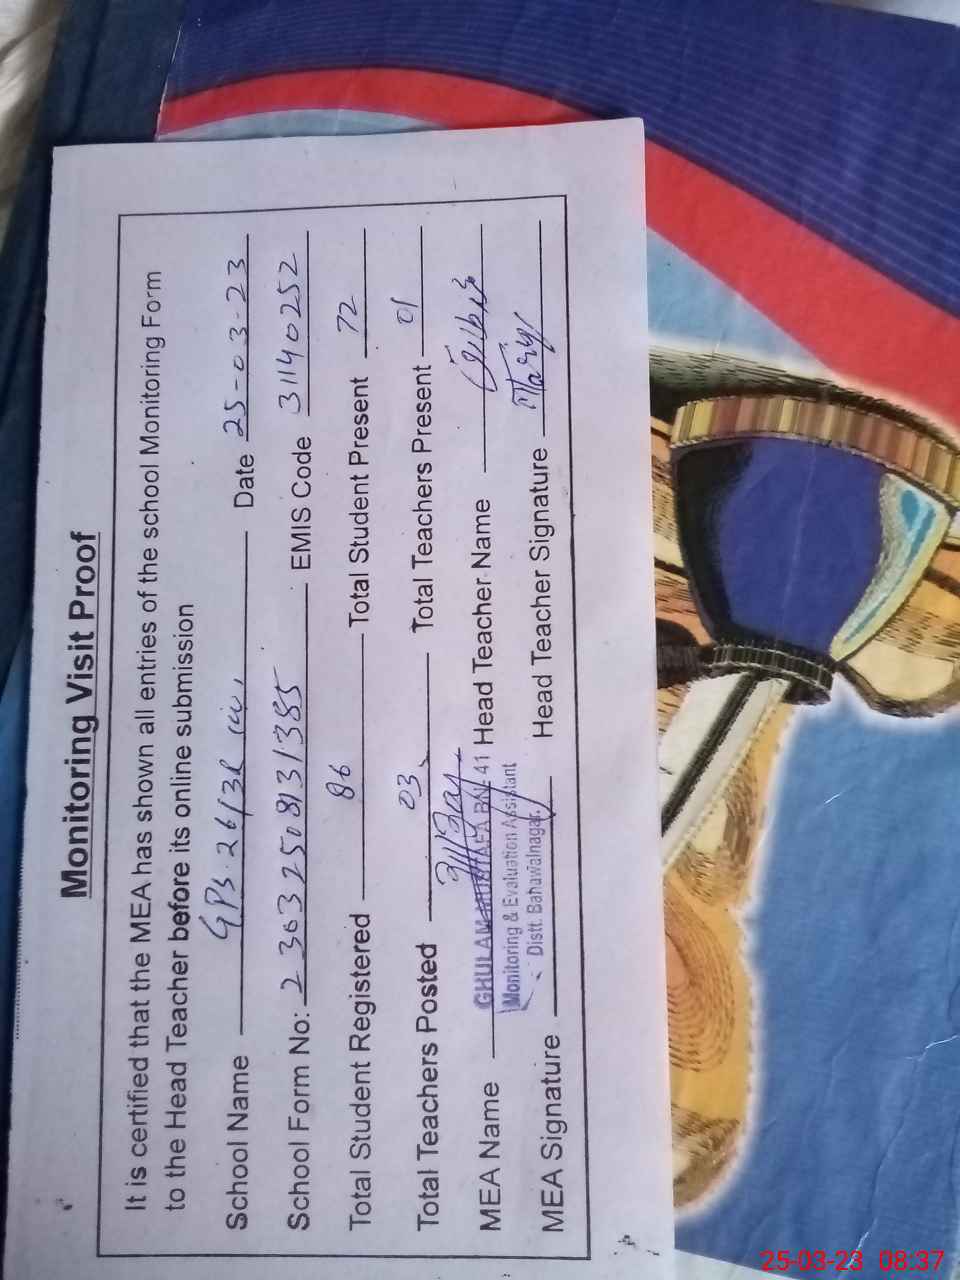 Monitoring Visit Proof
It is certified that the MEA has shown all entries of the school Monitoring Form
to the Head Teacher before its online submission
School Name GPS. 26/3R Date 25-03-23
School Form No: 2363250831385 EMIS Code 31140252
Total Student Registered 86 Total Student Present 72
Total Teachers Posted 03 Total Teachers Present 01
MEA Name GHULAM MURTAZA 41 Head Teacher Name
Monitoring & Evaluation Assistant
Distt. Bahawalnagar.
MEA Signature Head Teacher Signature
25-03-23 08:37